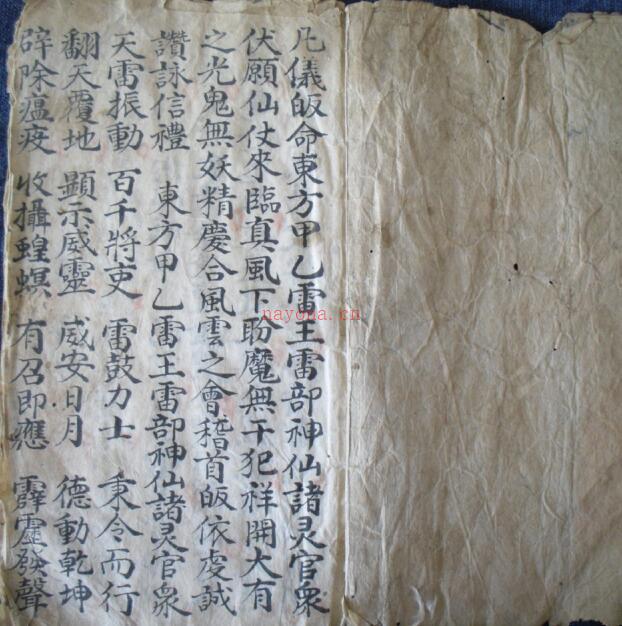 凡儀皈命東方甲乙雷王雷部神仙諸灵官衆
伏願仙仗來臨真風下盼魔無干犯祥開大有
之光鬼無妖精慶合風雲之會稽首皈依虔誠
讚詠信禮 東方甲乙雷王雷部神仙諸灵官衆
天雷振動 百千將吏 雷鼓力士 秉令而行
翻天覆地 顯示威靈 威安日月 德動乾坤
辟除瘟疫 收攝蝗螟 有召即應 霹靂發聲
nayona.cn